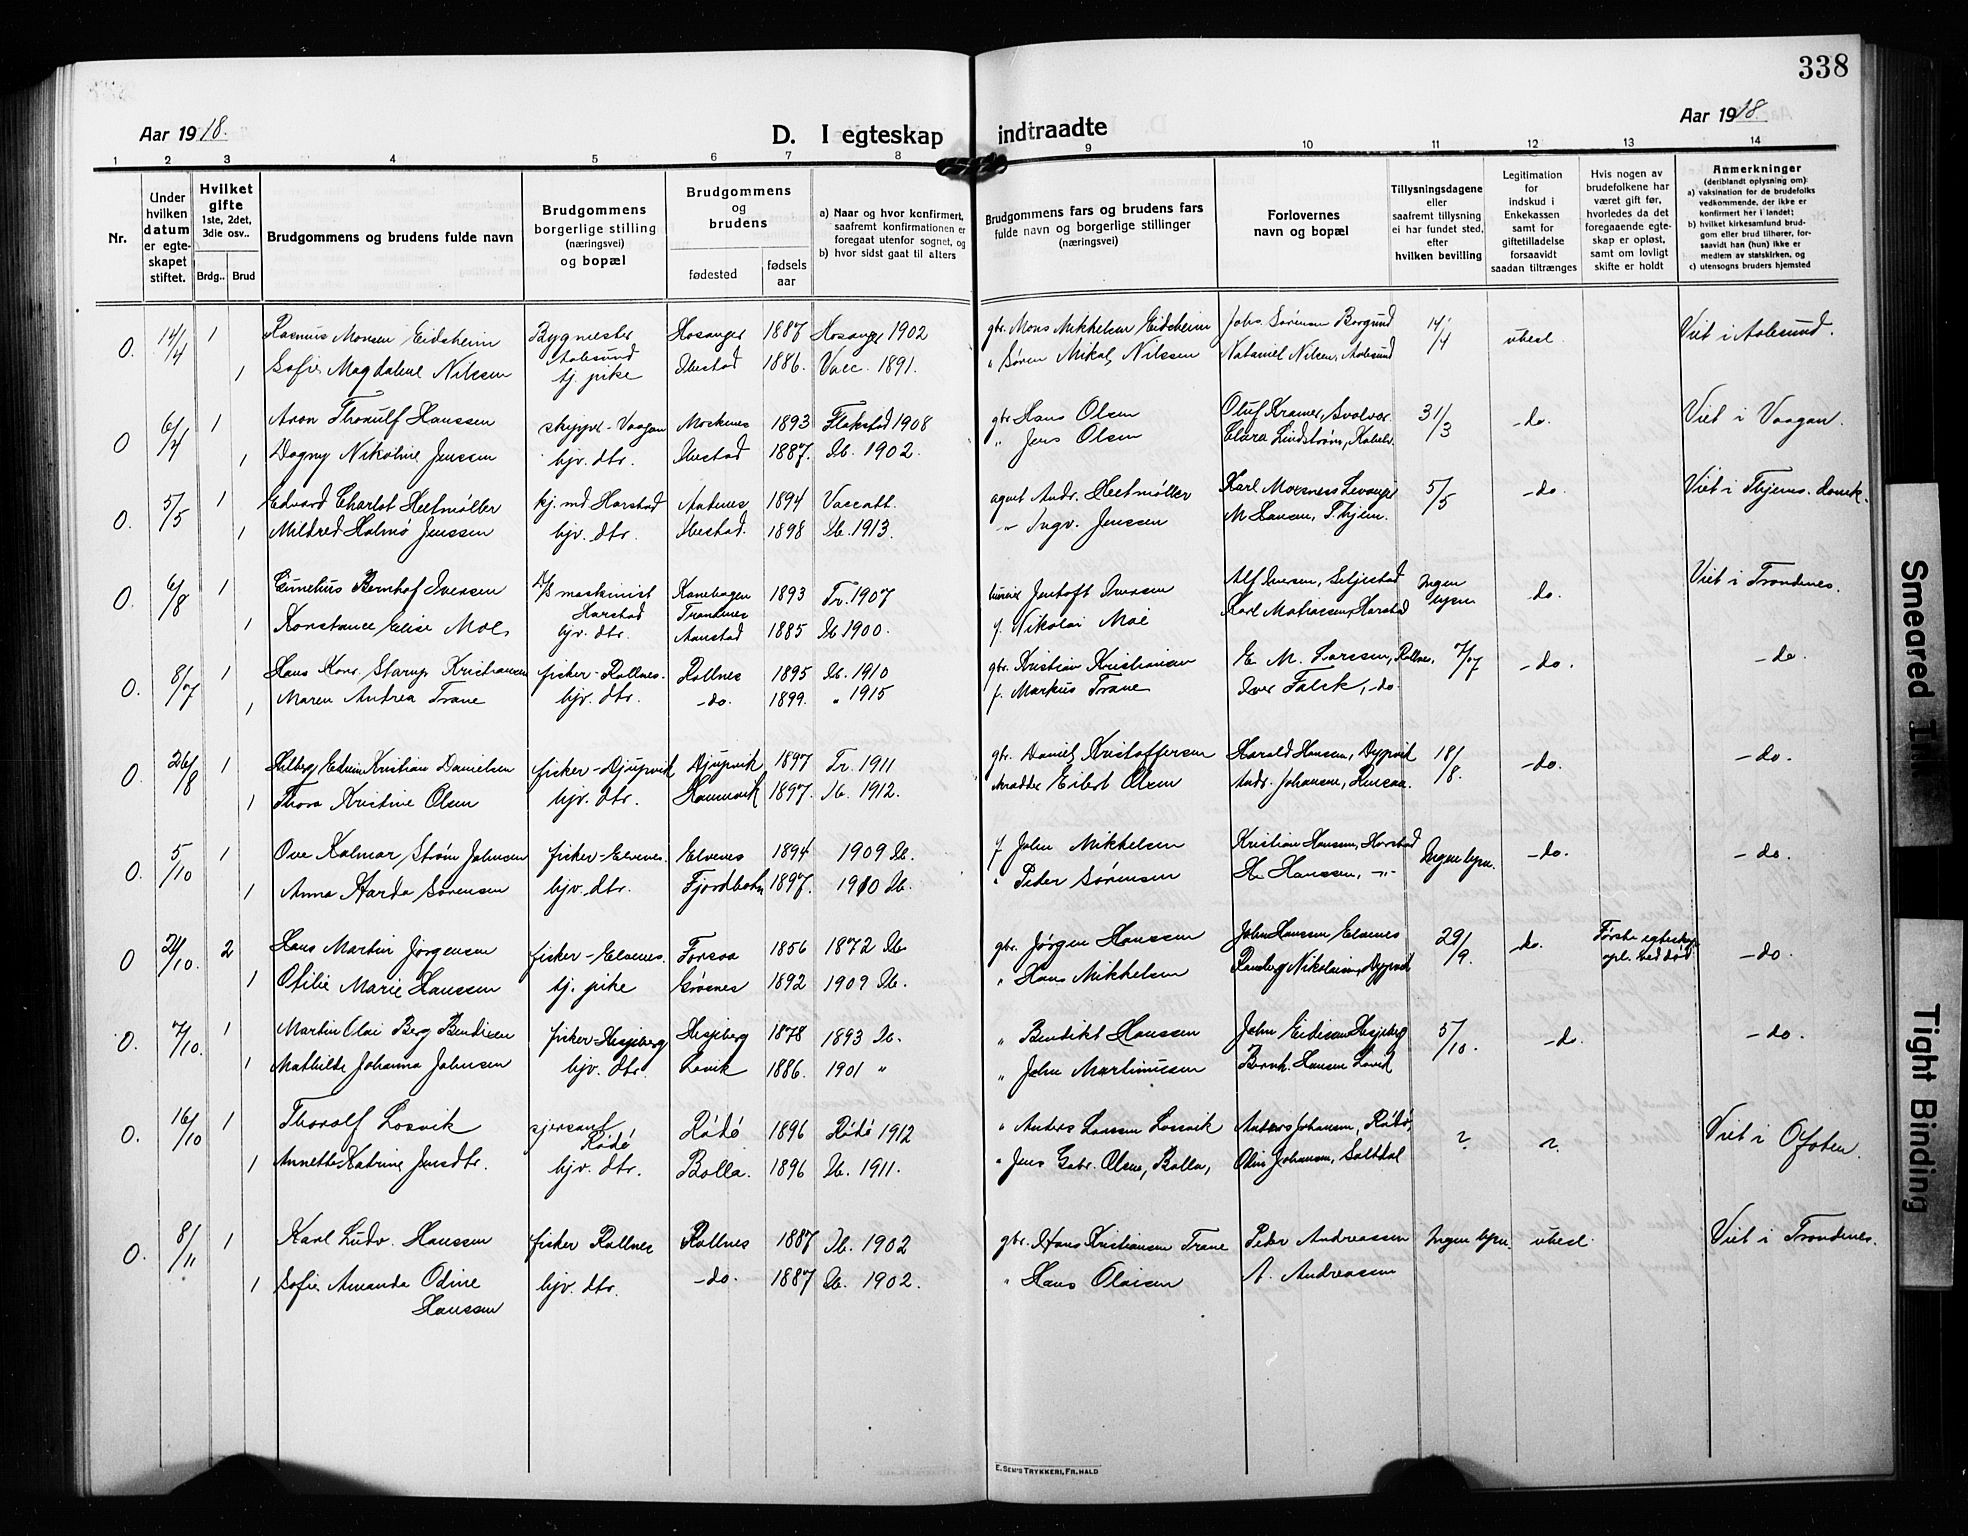 338
Aar 1918.
D. I egteskap indtraadte
Aar 1918.
1 2 3 4 5 6 7 8 9 10 11 12 13 14
Nr.
Under hvilken datum er egteskapet stiftet.
Hvilket gifte 1ste, 2det, 3die osv..
Brdg.. Brud
Brudgommens og brudens fulde navn
Brudgommens borgerlige stilling (næringsvei) og bopæl
Brudgommens og brudens
fødested
fødsels aar
a) Naar og hvor konfirmert, saafremt konfirmationen er foregaat utenfor sognet, og
b) hvor sidst gaat til alters
Brudgommens fars og brudens fars fulde navn og borgerlige stillinger (næringsvei)
Forlovernes navn og bopæl
Tillysningsdagene eller saafremt tillysning ei har fundet sted, efter hvilken bevilling
Legitimation for indskud i Enkekassen samt for giftetilladelse forsaavidt saadan tiltrænges
Hvis nogen av brudefolkene har været gift før, hvorledes da det foregaaende egteskap er opløst, samt om lovligt skifte er holdt
Anmerkninger (deriblandt oplysning om):
a) vaksination for de brudefolks vedkommende, der ikke er konfirmert her i landet;
b) hvilket kirkesamfund brudgom eller brud tilhører, forsaavidt han (hun) ikke er medlem av statskirken, og
c) utensogns bruders hjemsted
0. 14/4 1 Rasmus Monsen Eidsheim Bygmester Aalesund Hosanger 1887 Hosanger 1902 gbr. Mons Mikkelsen Eidsheim Johs. Sørensen Borgund 14/4 ubesl. Viet i Aalesund.
1 Sofie Magdalene Nilssen tj. pike Ibestad 1886. Vacc. 1891. " Søren Mikal Nilssen Nataniel Nilsen, Aalesund
0 6/4 1 Aron Thorulf Hanssen skipper - Vaagan Moskenes 1893 Flakstad 1908 gbr. Hans Olsen Oluf Kramer, Svolvær 31/3 - do. Viet i Vaagan.
1 Dagny Nikoline Jenssen hjv. dtr. Ibestad 1887. Ib. 1902. " Jens Olsen Clara Lindstrøm, Kabelv.
0. 5/5 1 Edvard Charlot Heitmøller kj. md Harstad 1894 agent Andr. Heitmøller Karl 5/5 - do. Viet i
1 Mildred Holmø Jenssen hjv. dtr. Ibestad. 1898 Ib. 1913. - " - Ingv. Jenssen M Hansen,
0. 6/8 1 Cornelius Bernhof Iversen D/S maskinist Harstad Kanebogen Trondenes 1893 Tr. 1907 Jentoft Iversen Alf Iversen, Seljestad Ingen lysn. do. Viet i Trondenes.
1 Konstance Elise Moe, hjv. dtr. Aanstad 1885 Ib 1900. f. Nikolai Moe Karl Mathiassen, Harstad
0. 8/07 1 Hans Konr. Starup Kristiansen fisker - Rollnes. Rollnes 1895 Ib. 1910 gbr. Kristian Kristiansen E. M. Larssen, Rollnes. 7/07 - do. - do.
1 Maren Antrea Trane hjv. dtr. - do. 1899. " 1915 f. Markus Trane Iver Falck, - do.
0. 26/8 1 Hilberg Edvin Kristian Danielsen fisker - Djupvik Djupvik 1897 Tr. 1911 gbr. Daniel Kristoffersen Harald Hansen, Dypvik 18/8. - do. - do.
1 Thora Kristine Olsen hjv. dtr. Hamnvik 1897. Ib. 1912. Eilert Olsen Andr. Johansen,
0. 5/10 1 Ove Kalmar Strøm Johnsen fisker - Elvenes. Elvenes 1894 1909 Ib. f John Mikkelsen Kristian Hansen, Harstad Ingen lysn. - do. - do.
1 Anna Harda Sørensen hjv. dtr. Fjordbotn 1897. 1910 Ib. " Peder Sørensen H. Hanssen, - " -
0 2/10. 2 Hans Martin Jørgensen fisker - Elvenes. Forsaa 1856 1872 Ib gbr. Jørgen Hanssen John Hanssen Elvenes 29/9. do. Første egteskap opl. ved død - do.
1 Otilie Marie Hanssen tj. pike Grøsnes 1892 1909 Ib. " Hans Mikkelsen Ransberg Nikolaisen, Dypvik
0. 7/10. 1 Martin Olai Berg Bendixen fisker Hesjeberg Hesjeberg 1878 1893 Ib. " Bendikt Hanssen John Eidissen Hesjeberg 5/10. - do. - do.
1 Mathilde Johanna Johnsen hjv. dtr. Lavik 1886. 1901 " " John Martinussen Bernh. Hansen Lavik
0. 16/10 1 Thoralf Losvik sjersant Rødø Rødø 1896 Rødø 1912 " Anders Larssen Losvik Anders Johansen, Rødø, ? ? Viet i Ofoten.
1 Annette Katrine Jensdtr. hjv. dtr. Bolla. 1896 Ib. 1911. " Jens Gabr. Olsen, Bolla, Odin Johansen, Saltdal
0. 8/11 1 Karl Ludv. Hanssen fisker Rollnes Rollnes 1887 Ib. 1902 gbr. Hans Kristiansen Trane Peder Andreassen Ingen lysn. ubesl. Viet i Trondenes.
1 Sofie Amanda Odine Hanssen hjv. dtr. - do. 1887 Ib. 1902. " Hans Olaisen A. Andreasen
E. SEM'S TRYKKERI, FR.HALD
Smeared Ink
Tight Binding